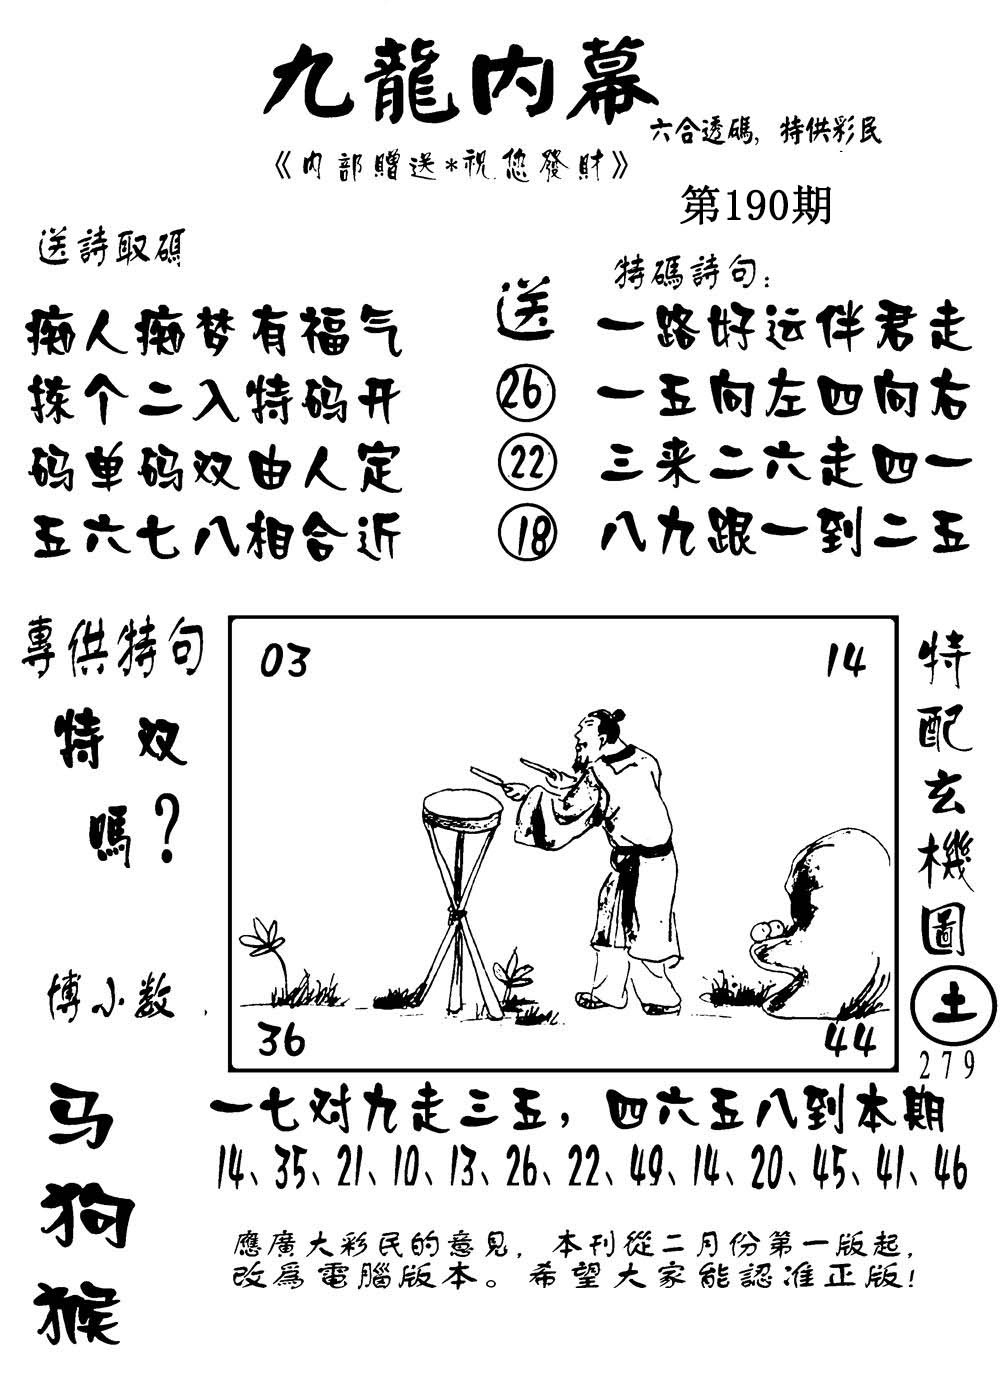 九龍内幕
六合透碼，特供彩民
《内部贈送*祝您發財》
第190期
送詩取碼
痴人痴梦有福气
拣个二入特码开
码单码双由人定
五六七八相合近
送
26
22
18
特碼詩句：
一路好运伴君走
一五向左四向右
三来二六走四一
八九跟一到二五
專供特句
特双
嗎？
博小数
马
狗
猴
03
14
36
44
特配玄機圖
土
279
一七对九走三五，四六五八到本期
14、35、21、10、13、26、22、49、14、20、45、41、46
應廣大彩民的意見，本刊從二月份第一版起，
改為電腦版本。希望大家能認准正版！